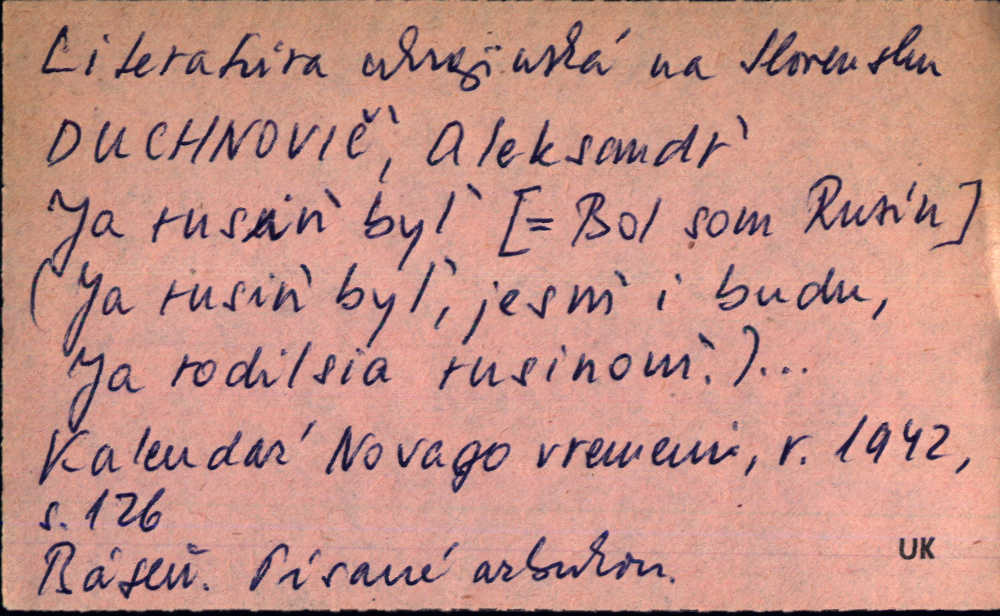 Literatúra ukrajinská na Slovensku
DUCHNOVIČ`, Aleksandr`
Ja rusin` byl` [= Bol som Rusín]
(Ja rusin` byl`, jesm` i budu,
Ja rodilsia rusinom`.)...
Kalendar´ Novago vremeni, r. 1942,
s. 126
Báseň. Písané azbukou.
UK